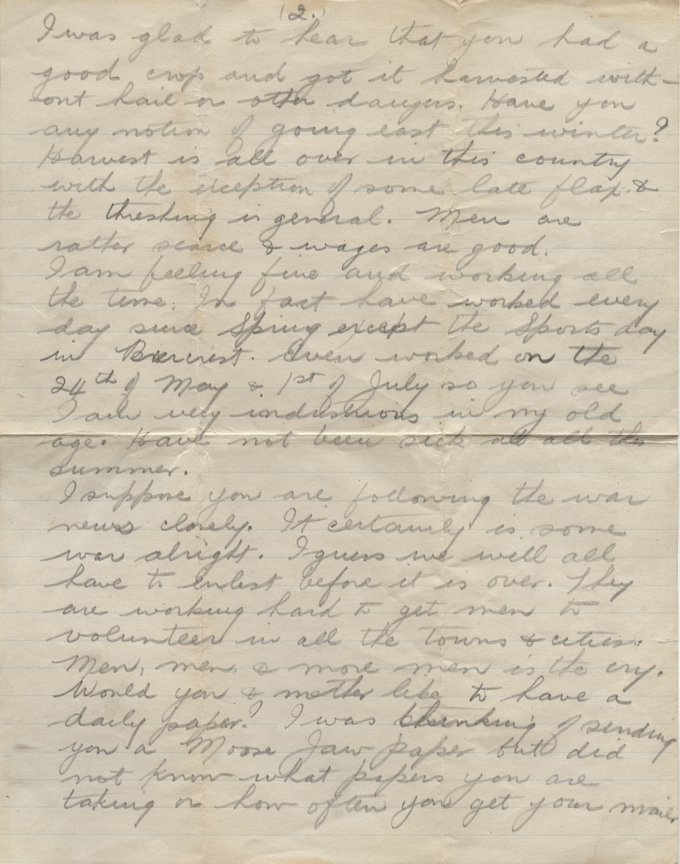 (2.)
I was glad to hear that you had a
good crop and got it harvested with-
out hail or other dangers. Have you
any notion of going east this winter?
Harvest is all over in this country
with the exception of some late flax &
the threshing is general. Men are
rather scarce & wages are good.
I am feeling fine and working all
the time. In fact have worked every
day since Spring except the Sports day
in Briercrest. Even worked on the
24th of May & 1st of July so you see
I am very industrious in my old
age. Have not been sick at all this
summer.
I suppose you are following the war
news closely. It certainly is some
war alright. I guess we will all
have to enlist before it is over. They
are working hard to get men to
volunteer in all the towns & cities.
Men, men, & more men is the cry.
Would you & mother like to have a
daily paper? I was thinking of sending
you a Moose Jaw paper but did
not know what papers you are
taking or how often you get your mail.